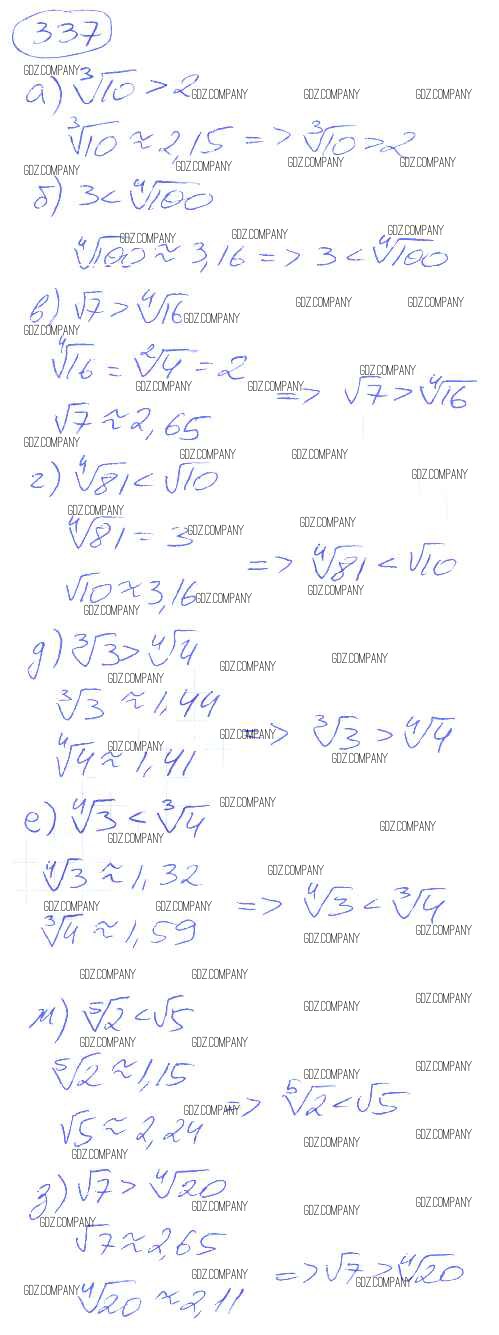 337
а) ∛10 > 2
∛10 ≈ 2,15 => ∛10 > 2
б) 3 < ∜100
∜100 ≈ 3,16 => 3 < ∜100
в) √7 > ∜16
∜16 = ²√4 = 2
√7 ≈ 2,65 => √7 > ∜16
г) ∜81 < √10
∜81 = 3
√10 ≈ 3,16 => ∜81 < √10
д) ∛3 > ∜4
∛3 ≈ 1,44
∜4 ≈ 1,41 => ∛3 > ∜4
е) ∜3 < ∛4
∜3 ≈ 1,32
∛4 ≈ 1,59 => ∜3 < ∛4
ж) ⁵√2 < √5
⁵√2 ≈ 1,15
√5 ≈ 2,24 => ⁵√2 < √5
з) √7 > ∜20
√7 ≈ 2,65
∜20 ≈ 2,11 => √7 > ∜20
GDZ.COMPANY